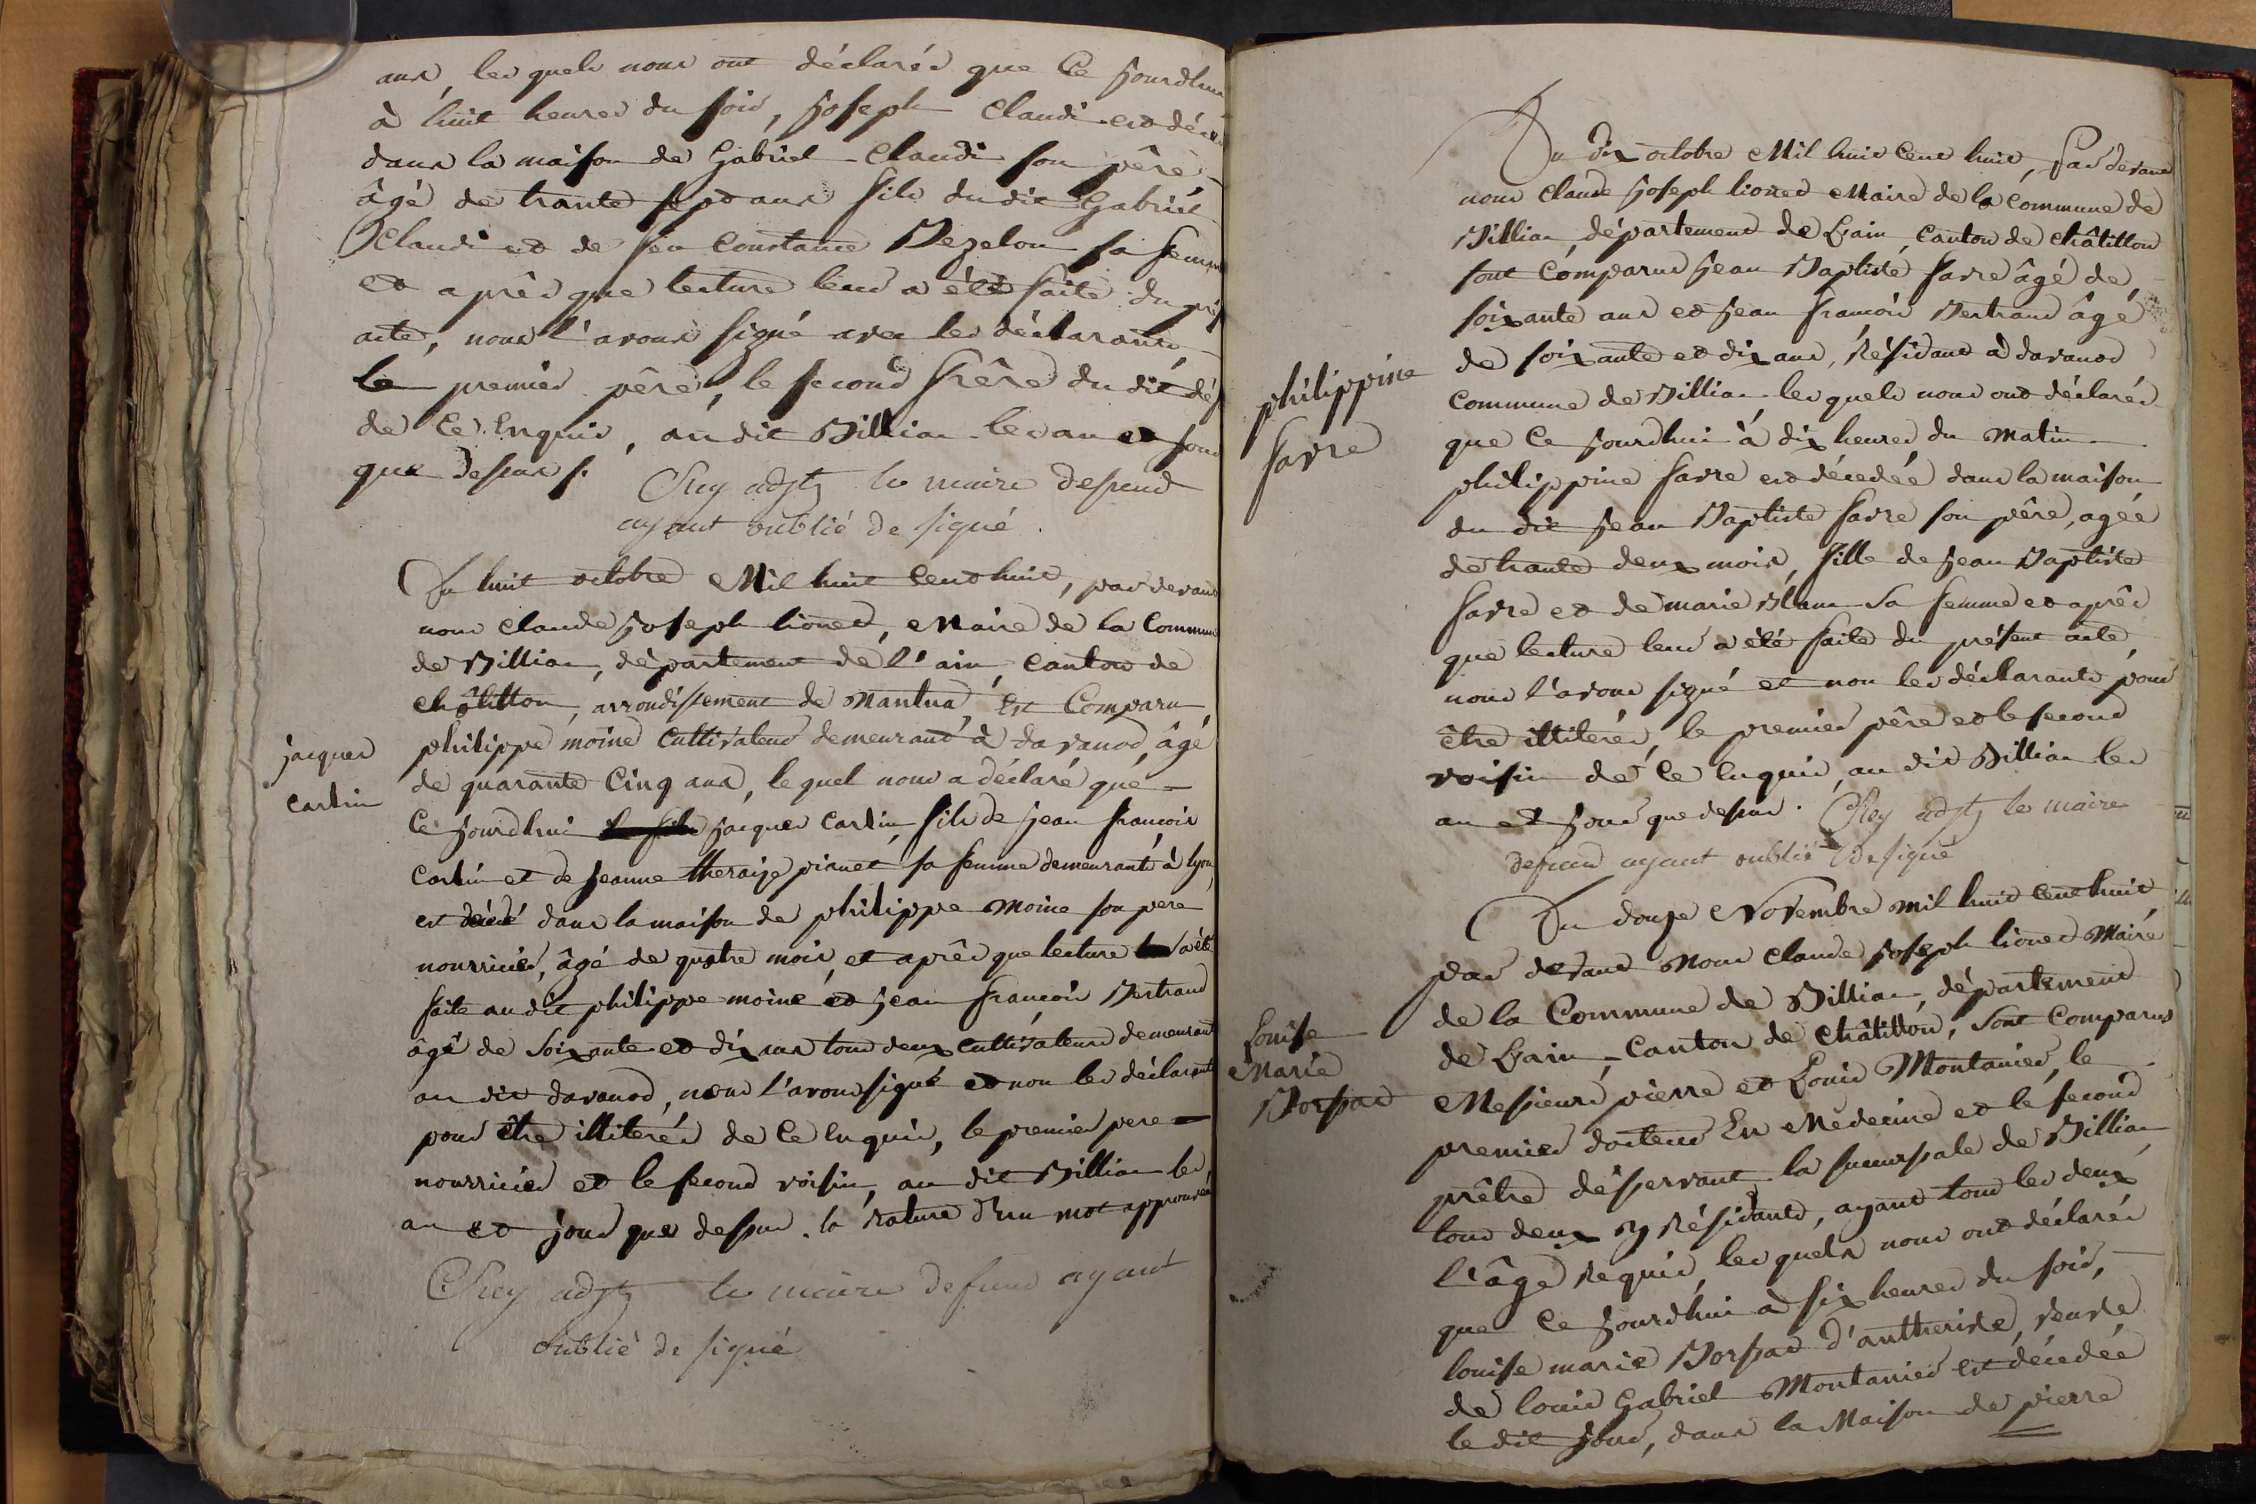 ans, les quels nous ont déclarés que Ce jourdhui
à huit heures du soir, joseph Claudi est
dans la maison de Gabriel Claudi son père
âgé de trante sept ans fils du dit Gabriel
Claudi et de feu Constance Bezelon sa femme
et après que lecture leur a été faite du
acte, nous l'avons signé avec les déclarants
le premier père, le second frère du dit
de Ce Enquis, au dit Billian les an et jour
que dessus /.
Rey adjt le maire defunt
ayant oublié de signé.
Du huit octobre Mil huit Cent huit, par devant
nous claude joseph lionet, Maire de la Commune
de Billian, département de l'ain, canton de
châtillon, arrondissement de Nantua Est Comparu
philippe moine cultivateur demeurant à davanod âgé
de quarante Cinq ans, le quel nous a déclaré que
jacques
carlin
Ce jourdhui jacques carlin, fils de jean françois
carlin et de jeanne theraize pianet sa femme demeurants à lyon,
est décédé dans la maison de philippe moine son pere
nourricier, âgé de quatre mois, et après que lecture a été
faite au dit philippe moine et jean françois Bertrand
âgé de Soixante et dix ans tous deux cultivateurs demeurant
au dit davanod, nous l'avons signé et non les déclarants
pour être illiterés de Ce Enquis, le premier pere
nourricier et le second voisin, au dit Billian les
an et jour que dessus. la rature d'un mot approuvée
Rey adjt le maire defunt ayant
oublié de signé
Du dix octobre Mil huit Cent huit, Par devant
nous claude joseph lionet Maire de la commune de
Billian, département de L'ain, canton de châtillon
sont comparus jean Baptiste favre âgé de
soixante ans et jean françois Bertrand âgé
de soixante et dix ans, Résidant à davanod
philippine
favre
commune de Billian, les quels nous ont déclarés
que Ce jourdhui à dix heures du Matin
philippine favre est décedée dans la maison
du dit jean Baptiste favre son père, agée
de trante deux mois, fille de jean Baptiste
favre et de marie Blanc sa femme et après
que lecture leur a été faite du présent acte,
nous l'avons signé et non les déclarants pour
être illiterés, le premier père et le second
voisin de Ce Enquis, au dit Billian les
an et jour que dessus. Rey adjt le maire
defunt ayant oublié de signé
Du douze Novembre mil huit cent huit
par devant Nous claude joseph lionet Maire
de la Commune de Billian, département
Louise
Marie
Borssat
de L'ain, Canton de châtillon, Sont Comparus
Messieurs pierre et Louis Montanier, le
premier docteur En Médecine et le second
prêtre déservant la succursale de Billian
tous deux y Résidants, ayant tous les deux
l'âge Requis, les quels nous ont déclarés
que Ce jourdhui à six heures du soir,
louise marie Borssat d'antherive, veuve
de louis Gabriel Montanier est décedée
le dit jour, dans la Maison de pierre